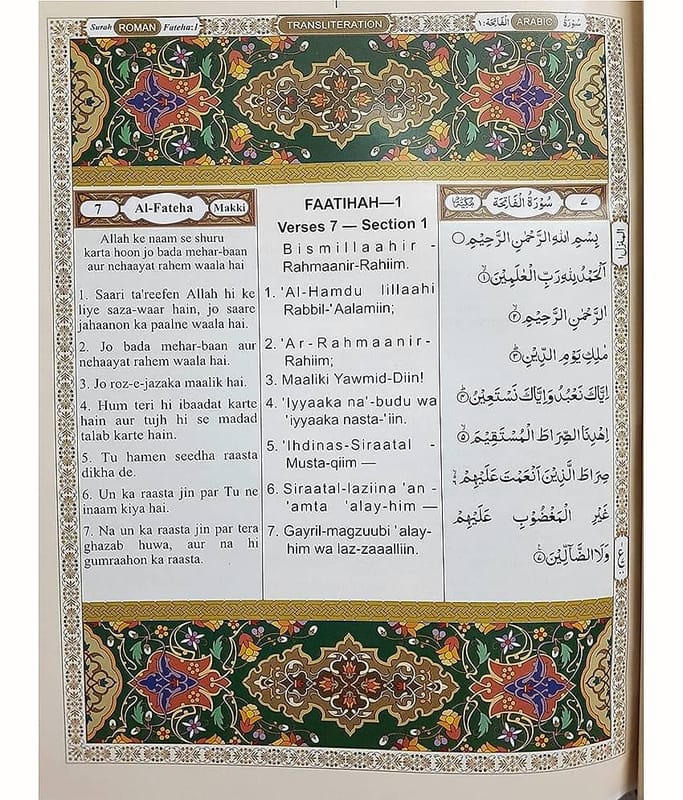 Surah ROMAN Fateha:1
TRANSLITERATION
سُورَةُ ARABIC اَلْفَاتِحَة:١
7 Al-Fateha Makki
Allah ke naam se shuru
karta hoon jo bada mehar-baan
aur nehaayat rahem waala hai
1. Saari ta'reefen Allah hi ke
liye saza-waar hain, jo saare
jahaanon ka paalne waala hai.
2. Jo bada mehar-baan aur
nehaayat rahem waala hai.
3. Jo roz-e-jazaka maalik hai.
4. Hum teri hi ibaadat karte
hain aur tujh hi se madad
talab karte hain.
5. Tu hamen seedha raasta
dikha de.
6. Un ka raasta jin par Tu ne
inaam kiya hai.
7. Na un ka raasta jin par tera
ghazab huwa, aur na hi
gumraahon ka raasta.
FAATIHAH—1
Verses 7 — Section 1
Bismillaahir -
Rahmaanir-Rahiim.
1. 'Al-Hamdu lillaahi
Rabbil-'Aalamiin;
2. 'Ar-Rahmaanir-
Rahiim;
3. Maaliki Yawmid-Diin!
4. 'Iyyaaka na'-budu wa
'iyyaaka nasta-'iin.
5. 'Ihdinas-Siraatal -
Musta-qiim —
6. Siraatal-laziina 'an -
'amta 'alay-him —
7. Gayril-magzuubi 'alay-
him wa laz-zaaalliin.
٧ سُوْرَةُ الْفَاتِحَة مَكِّيَّة
بِسْمِ اللهِ الرَّحْمٰنِ الرَّحِيْمِ
اَلْحَمْدُ لِلّٰهِ رَبِّ الْعٰلَمِيْنَ ١
الرَّحْمٰنِ الرَّحِيْمِ ٢
مٰلِكِ يَوْمِ الدِّيْنِ ٣
اِيَّاكَ نَعْبُدُ وَاِيَّاكَ نَسْتَعِيْنُ ٤
اِهْدِنَا الصِّرَاطَ الْمُسْتَقِيْمَ ٥
صِرَاطَ الَّذِيْنَ اَنْعَمْتَ عَلَيْهِمْ ٦
غَيْرِ الْمَغْضُوْبِ عَلَيْهِمْ
وَلَا الضَّآلِّيْنَ ٧
ع